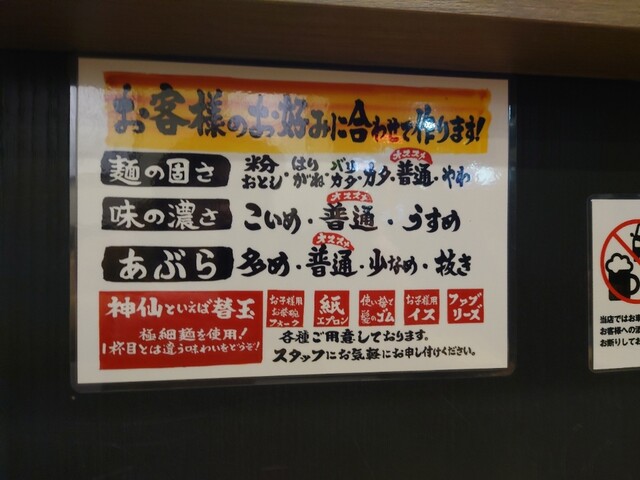 お客様のお好みに合わせて作ります!
オススメ
麺の固さ 粉おとし・はりがね・バリカタ・カタ・普通・やわ
オススメ
味の濃さ こいめ・普通・うすめ
オススメ
あぶら 多め・普通・少なめ・抜き
神仙といえば替玉
極細麺を使用!
1杯目とは違う味わいをどうぞ!
お子様用お茶碗フォーク 紙エプロン 使い捨て髪のゴム お子様用イス ファブリーズ
各種ご用意しております。
スタッフにお気軽にお申し付けください。
当店ではお車
お客様への酒
お断りしてお